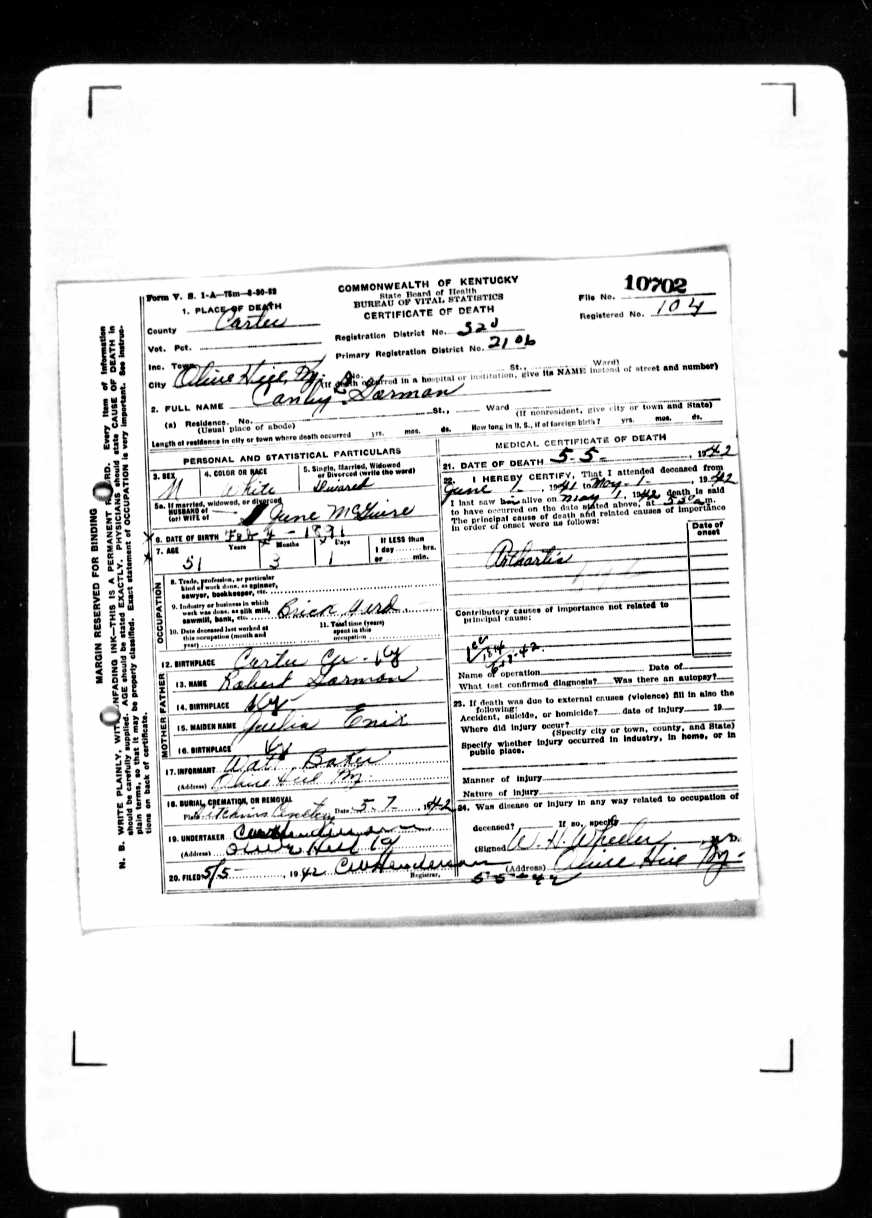 Form V. S. 1-A—75m—6-30-52
COMMONWEALTH OF KENTUCKY
State Board of Health
BUREAU OF VITAL STATISTICS
CERTIFICATE OF DEATH
File No. 10702
Registered No. 104
1. PLACE OF DEATH
County Carter
Vot. Pct.
Inc. Town
City Olive Hill, Ky.
Registration District No. 320
Primary Registration District No. 2106
No. St., Ward)
(If death occurred in a hospital or institution, give its NAME instead of street and number)
2. FULL NAME
(a) Residence. No. St., Ward
(Usual place of abode) (If nonresident, give city or town and State)
Length of residence in city or town where death occurred yrs. mos. ds. How long in U. S., if of foreign birth? yrs. mos. ds.
PERSONAL AND STATISTICAL PARTICULARS
3. SEX M
4. COLOR OR RACE White
5. Single, Married, Widowed or Divorced (write the word)
5a. If married, widowed, or divorced
HUSBAND of
(or) WIFE of June McGuire
6. DATE OF BIRTH Feb 4 - 1891
7. AGE 51 Years 3 Months 1 Days
If LESS than 1 day hrs. or min.
OCCUPATION
8. Trade, profession, or particular
kind of work done, as spinner,
sawyer, bookkeeper, etc.
9. Industry or business in which
work was done, as silk mill,
sawmill, bank, etc. Brick Yerd
10. Date deceased last worked at
this occupation (month and
year)
11. Total time (years)
spent in this
occupation
12. BIRTHPLACE Carter Co. Ky
FATHER
13. NAME Robert
14. BIRTHPLACE Ky
MOTHER
15. MAIDEN NAME
16. BIRTHPLACE Ky
17. INFORMANT Wat Baker
(Address) Olive Hill Ky.
18. BURIAL, CREMATION, OR REMOVAL
Place Cemetery Date 5-7 1942
19. UNDERTAKER
(Address) Olive Hill Ky
20. FILED 5/5 - , 1942 CW Henderson
Registrar.
MEDICAL CERTIFICATE OF DEATH
21. DATE OF DEATH 5-5- , 1942
22. I HEREBY CERTIFY, That I attended deceased from
June 1 , 1941 to May 1 , 1942
I last saw him alive on May 1, 1942 death is said
to have occurred on the date stated above, at m.
The principal cause of death and related causes of importance
in order of onset were as follows:
Date of onset
Contributory causes of importance not related to
principal cause:
Name of operation Date of
What test confirmed diagnosis? Was there an autopsy?
23. If death was due to external causes (violence) fill in also the
following:
Accident, suicide, or homicide? date of injury 19
Where did injury occur?
(Specify city or town, county, and State)
Specify whether injury occurred in industry, in home, or in
public place.
Manner of injury
Nature of injury
24. Was disease or injury in any way related to occupation of
deceased? If so, specify
(Signed) W. H. Wheeler, M.D.
(Address) Olive Hill Ky.
5-5-42
MARGIN RESERVED FOR BINDING
N. B. WRITE PLAINLY, WITH UNFADING INK—THIS IS A PERMANENT RECORD. Every item of information
should be carefully supplied. AGE should be stated EXACTLY. PHYSICIANS should state CAUSE OF DEATH in
plain terms, so that it may be properly classified. Exact statement of OCCUPATION is very important. See instruc-
tions on back of certificate.